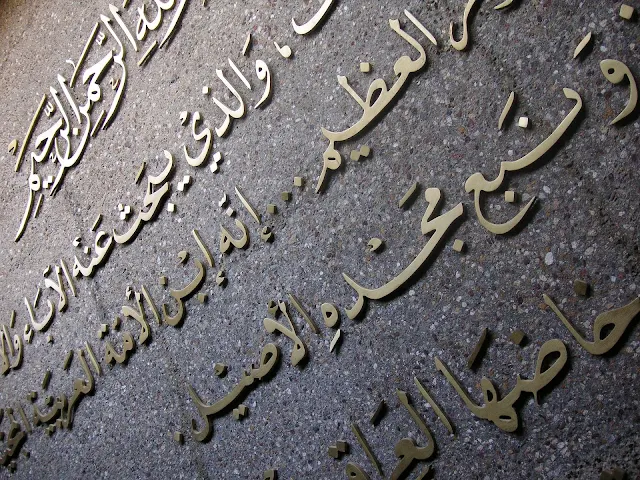 الله الرحمن الرحيم
والذي يبحث عنه الآباء
العظيم ... إنه ابن الأمة العربية
و نبع مجده الأصيل
حاضنها